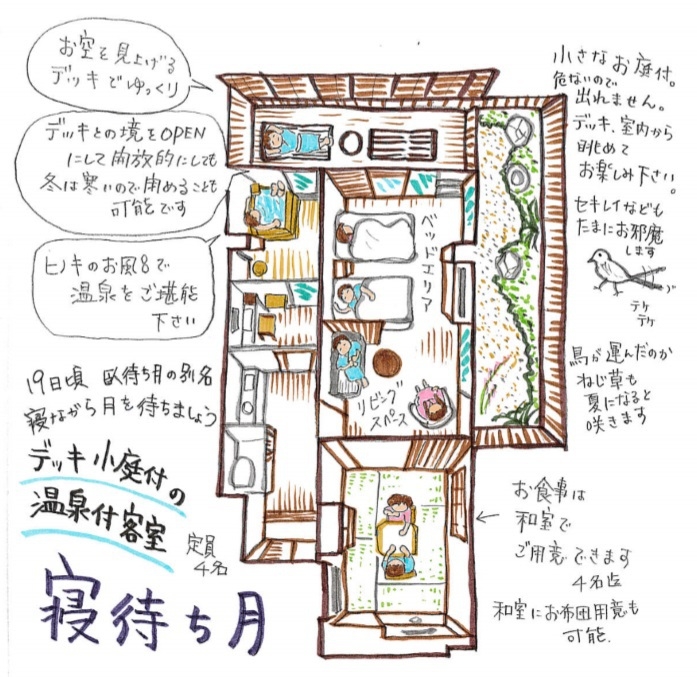 お空を見上げる
デッキでゆっくり
デッキとの境をOPEN
にして開放的にしても
冬は寒いので閉めることも
可能です
ヒノキのお風呂で
温泉をご堪能
下さい
19日頃 臥待ち月の別名
寝ながら月を待ちましょう
デッキ小庭付の
温泉付客室
定員
4名
寝待ち月
ベッドエリア
リビング
スペース
小さなお庭付。
危ないので
出れません。
デッキ、室内から
眺めて
お楽しみ下さい。
セキレイなども
たまにお邪魔
します
テケ
テケ
鳥が運んだのか
ねじ草も
夏になると
咲きます
お食事は
和室で
ご用意できます
4名迄
和室にお布団用意も
可能.